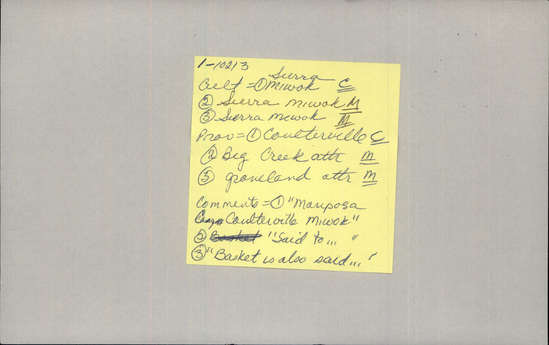 1-10213
Sierra
Cult = ① Miwok C
② Sierra Miwok M
③ Sierra Miwok M
Prov = ① Coulterville C
② Big Creek attr M
③ groveland attr M
Comments = ① "Mariposa
Coulterville Miwok"
② "Said to... "
③ "Basket is also said..."